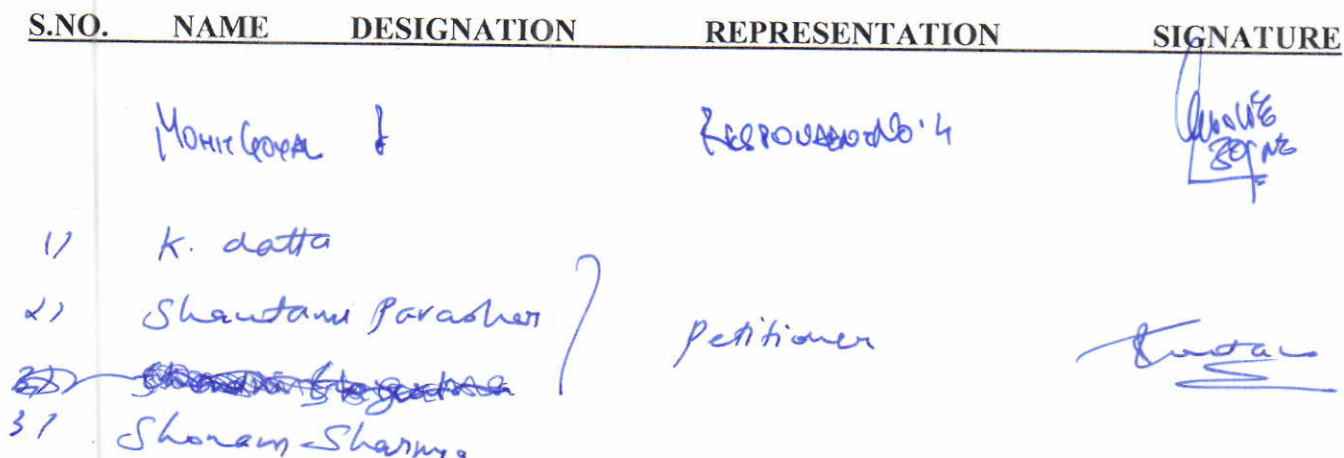 S.NO. NAME DESIGNATION REPRESENTATION SIGNATURE
MOHIT GOYAL RESPONDENT NO. 4
1) K. datta
2) Shantanu Parasher Petitioner
3) Sharma